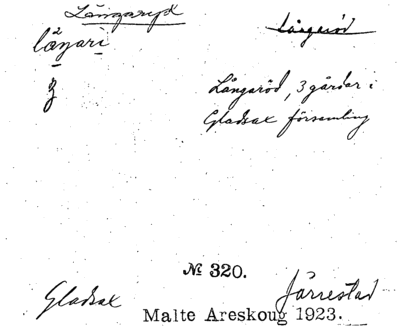 Långaryd
Långaröd, 3 gårdar i
Gladsax församling
№ 320.
Gladsax
Järrestad
Malte Areskoug 1923.